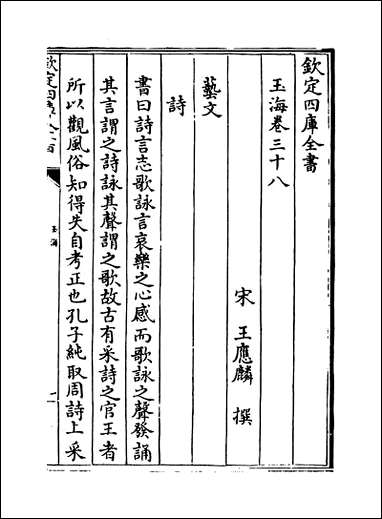 欽定四庫全書
玉海卷三十八
宋 王應麟 撰
藝文
詩
書曰詩言志歌詠言哀樂之心感而歌詠之聲發誦
其言謂之詩詠其聲謂之歌故古有采詩之官王者
所以觀風俗知得失自考正也孔子純取周詩上采
欽定四庫全書
玉海
一